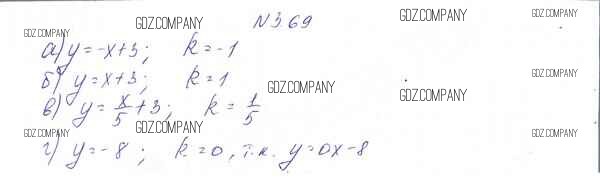 N 3.69
GDZ.COMPANY GDZ.COMPANY GDZ.COMPANY
а) y = -x+3; k = -1
б) y = x+3; k = 1
GDZ.COMPANY GDZ.COMPANY
в) y = x/5 + 3; k = 1/5
GDZ.COMPANY
GDZ.COMPANY GDZ.COMPANY GDZ.COMPANY
г) y = -8; k = 0, т.к. y = 0x-8